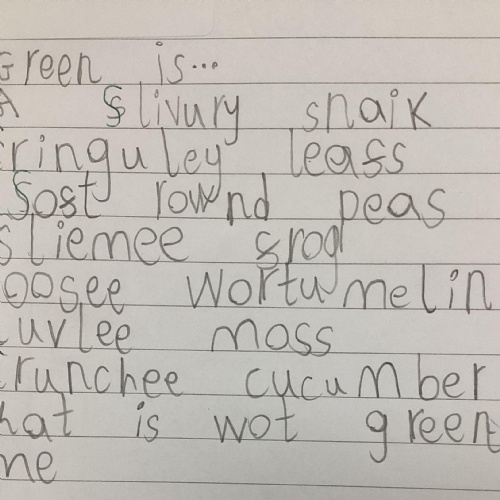 Green is...
A slivury snaik
cringuley leafs
Soft rownd peas
sliemee frog
oosee wortumelin
Luvlee moss
crunchee cucumber
that is wot green
me